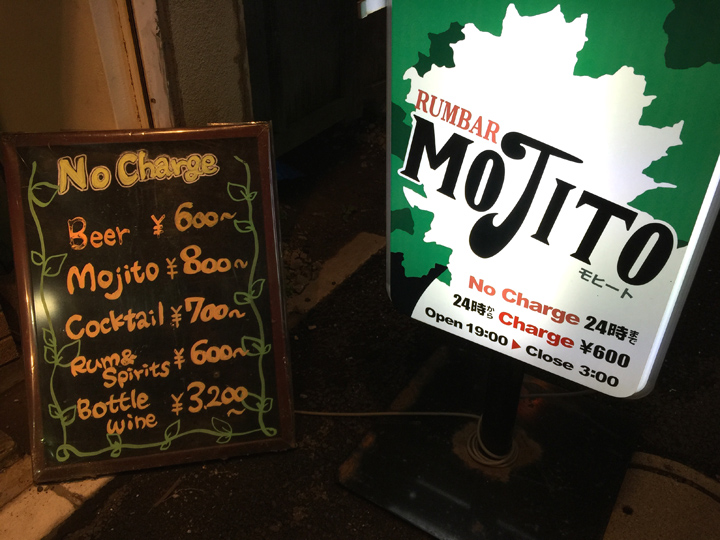 No Charge
Beer ¥600~
Mojito ¥800~
Cocktail ¥700~
Rum&
Spirits ¥600~
Bottle
wine ¥3.200~
RUMBAR
MOJITO
モヒート
No Charge 24時まで
24時から Charge ¥600
Open 19:00 ▶ Close 3:00